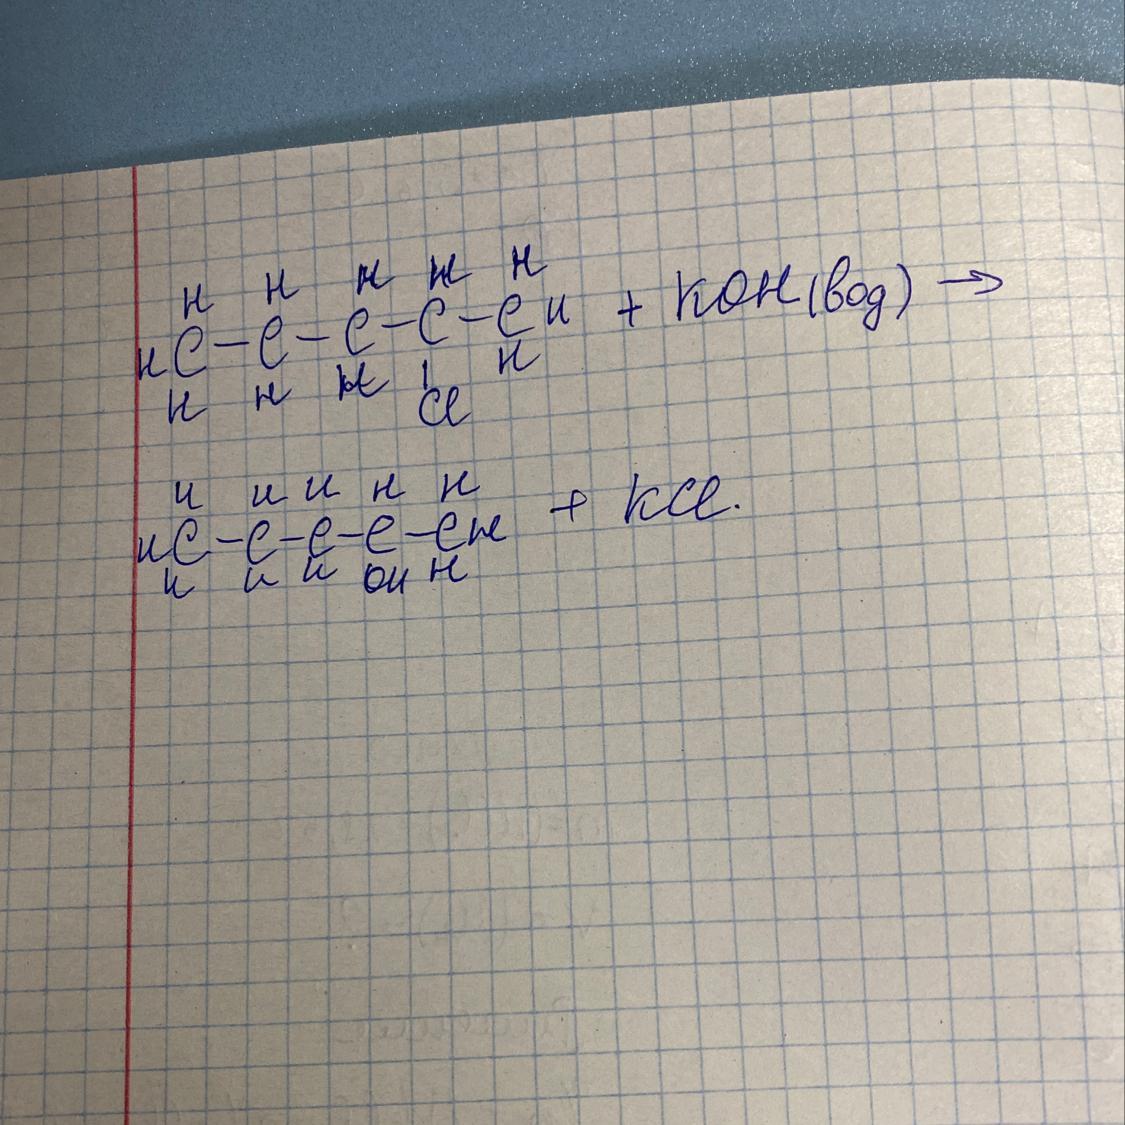 H H H H H
HC-C-C-C-CH + KOH(вод) →
H H H Cl H
H H H H H
HC-C-C-C-CH + KCl.
H H H OH H